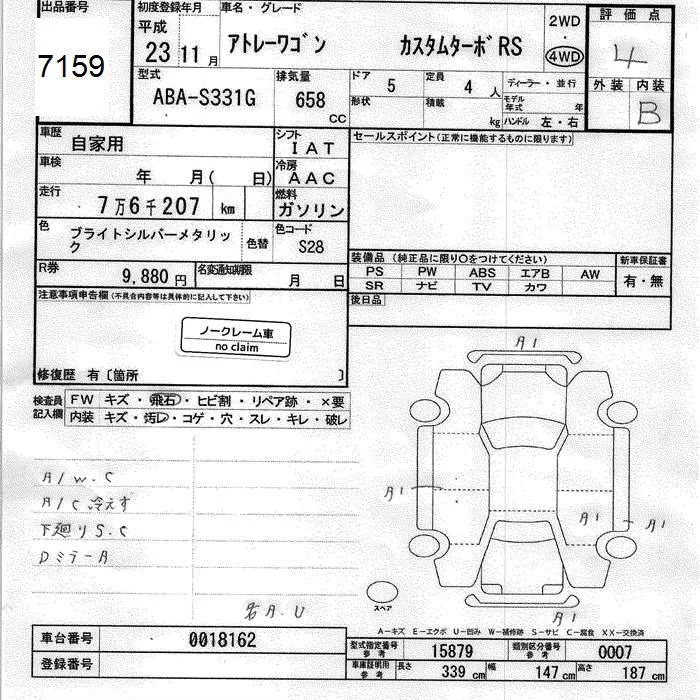 出品番号
7159
初度登録年月
平成
23 11 月
車名・グレード
アトレーワゴン カスタムターボRS
2WD
・
4WD
評価点
4
外装 内装
B
型式
ABA-S331G
排気量
658
CC
ドア
5
定員
4 人
形状
積載
kg
ディーラー・並行
モデル年式 年
ハンドル 左・右
車歴
自家用
シフト
IAT
セールスポイント(正常に機能するものに限ります)
車検
年 月( 日)
冷房
AAC
走行
7万6千207 km
燃料
ガソリン
色
ブライトシルバーメタリック
色替
色コード
S28
R券
9,880 円
名変通知期限
月 日
装備品 (純正品に限り○をつけてください)
PS PW ABS エアB AW
SR ナビ TV カワ
新車保証書
有・無
後日品
注意事項申告欄(不具合内容等は具体的に記入して下さい)
ノークレーム車
no claim
修復歴 有〔箇所 〕
検査員記入欄
FW キズ・飛石・ヒビ割・リペア跡・×要
内装 キズ・汚レ・コゲ・穴・スレ・キレ・破レ
A/W.C
A/C冷えず
下廻りS.C
DミラーA
名A.U
A1
A1
A1
A1
A1
スペア
A-キズ E-エクボ U-凹み W-補修跡 S-サビ C-腐食 XX-交換済
車台番号
0018162
登録番号
型式指定番号
参考
15879
類別区分番号
参考
0007
車庫証明用
参考
長さ 339 cm 幅 147 cm 高さ 187 cm